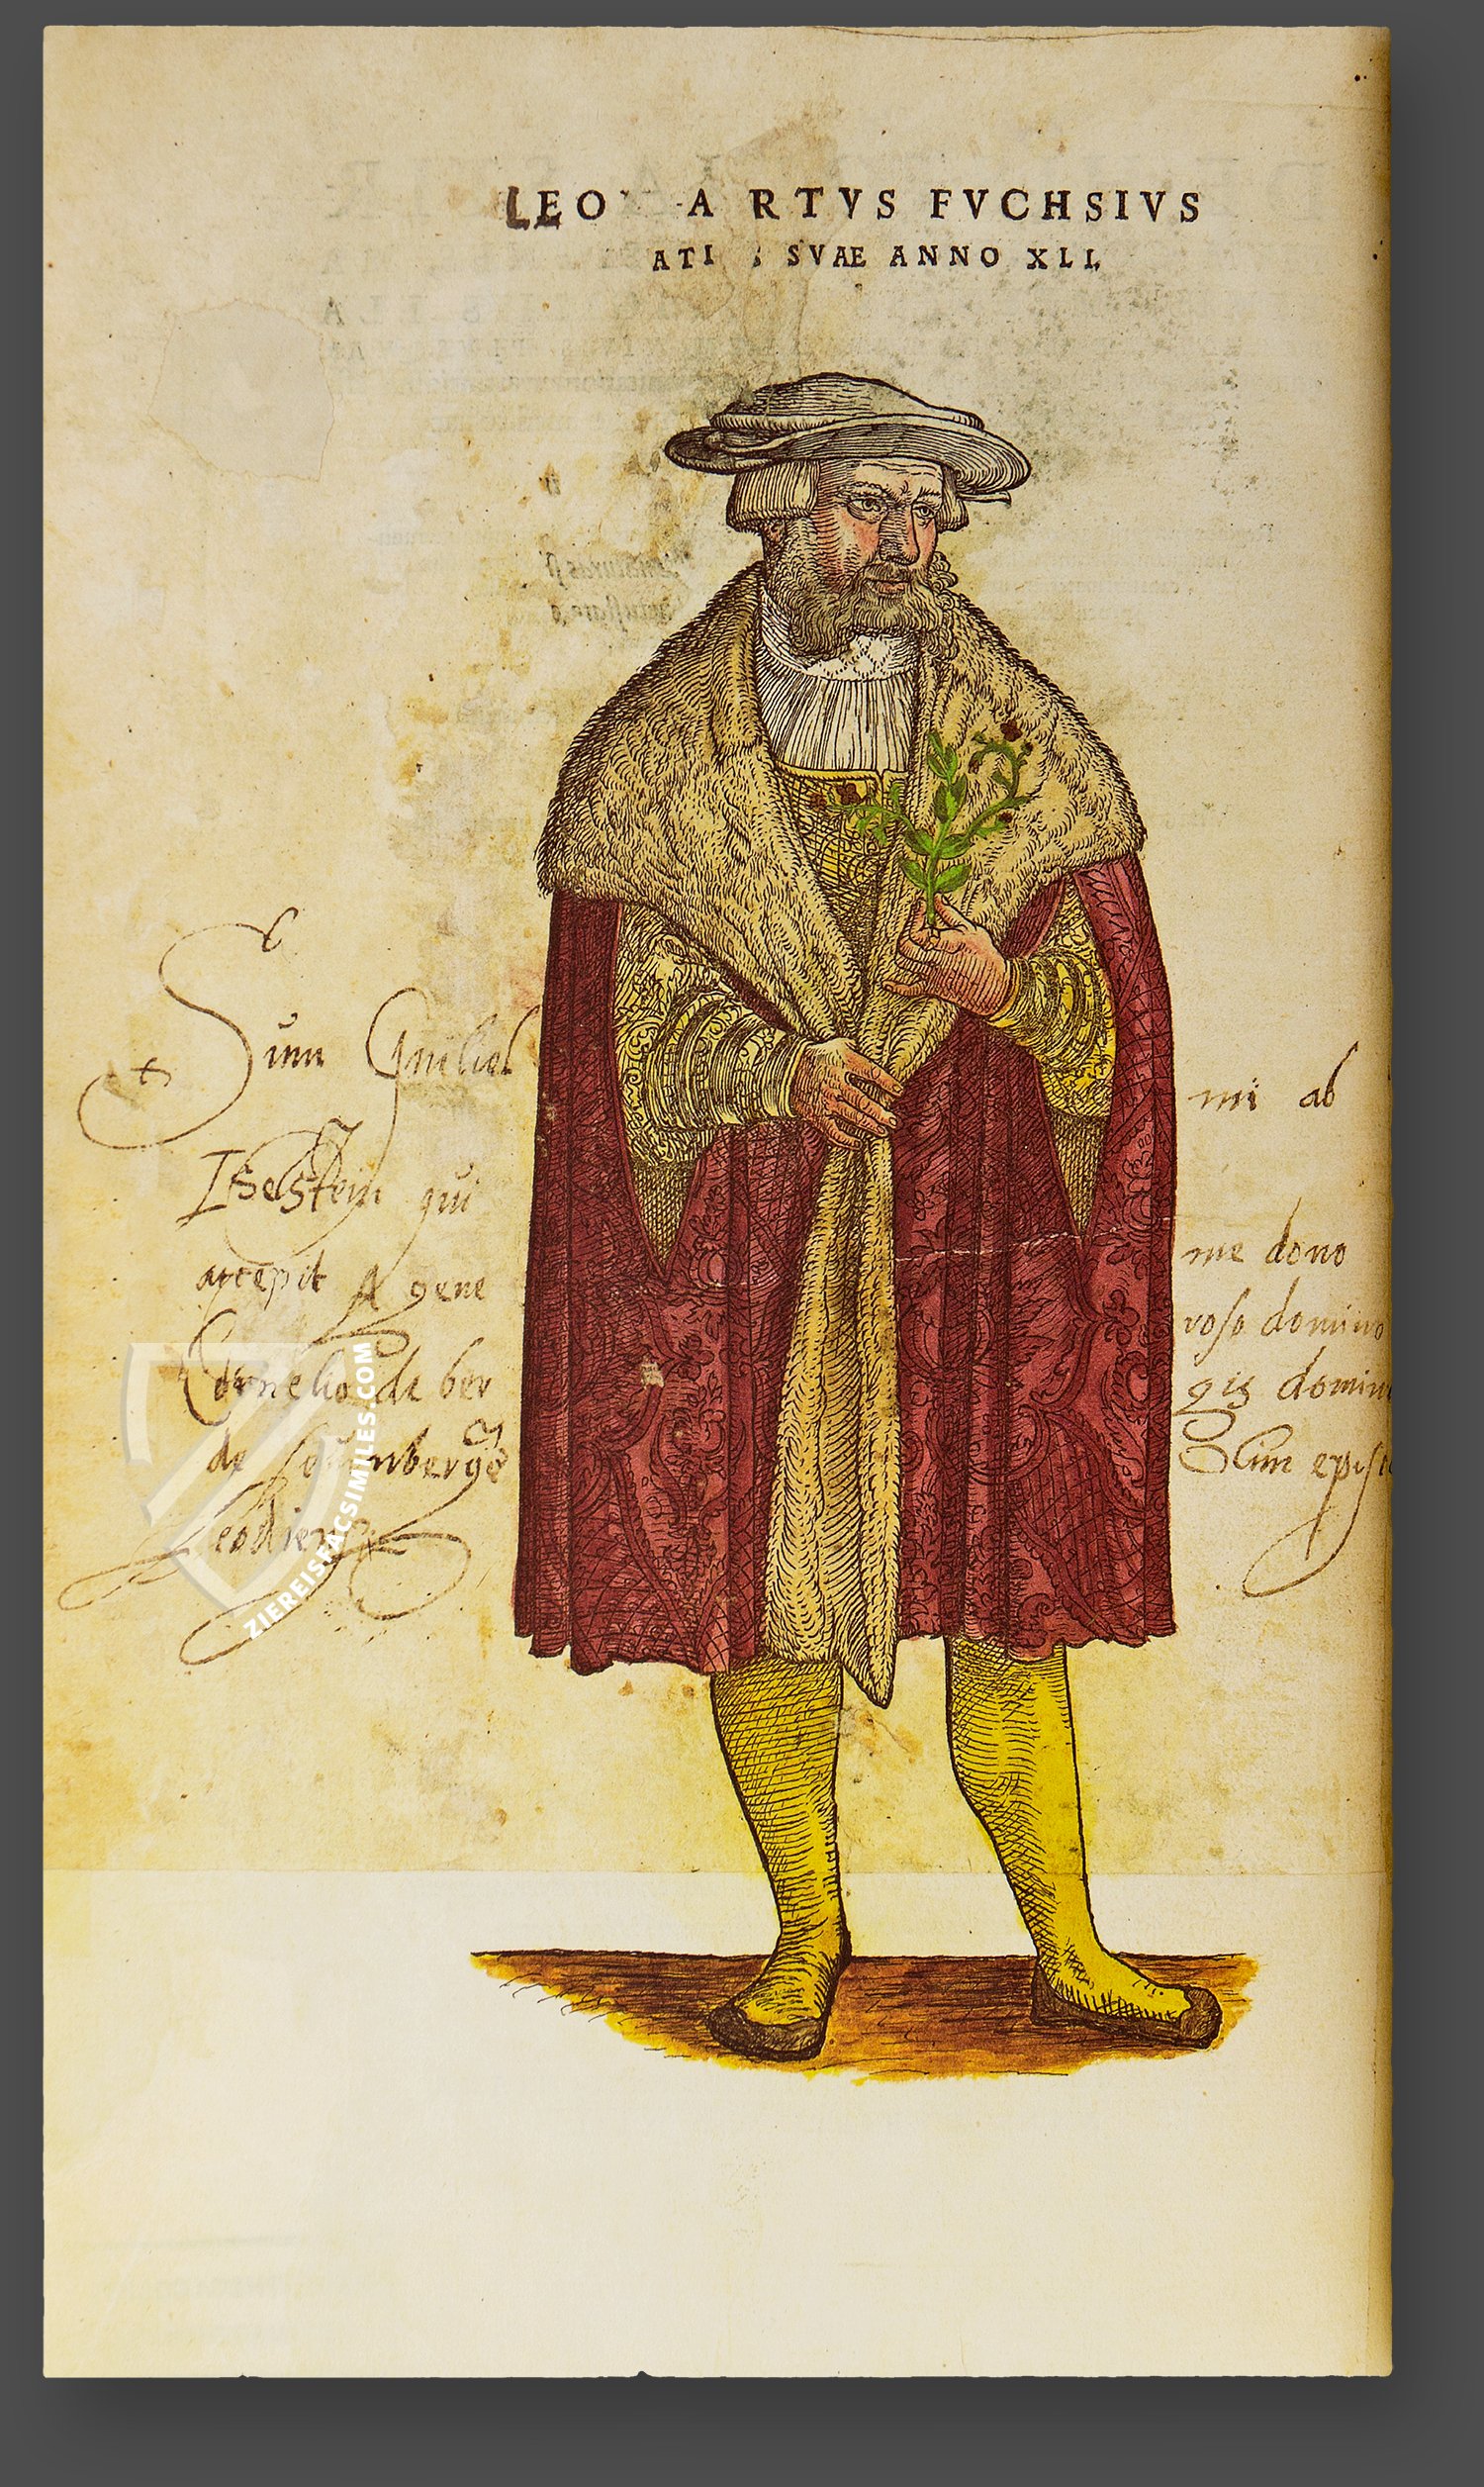 LEO A RTVS FVCHSIVS
ATI SVAE ANNO XLI
Sum Guliel mi ab
Iselstein qui me dono
accepit A gene roso domino
Cornelio de ber gis domin
de nberge epis
Leodien
ZIEREISFACSIMILES.COM